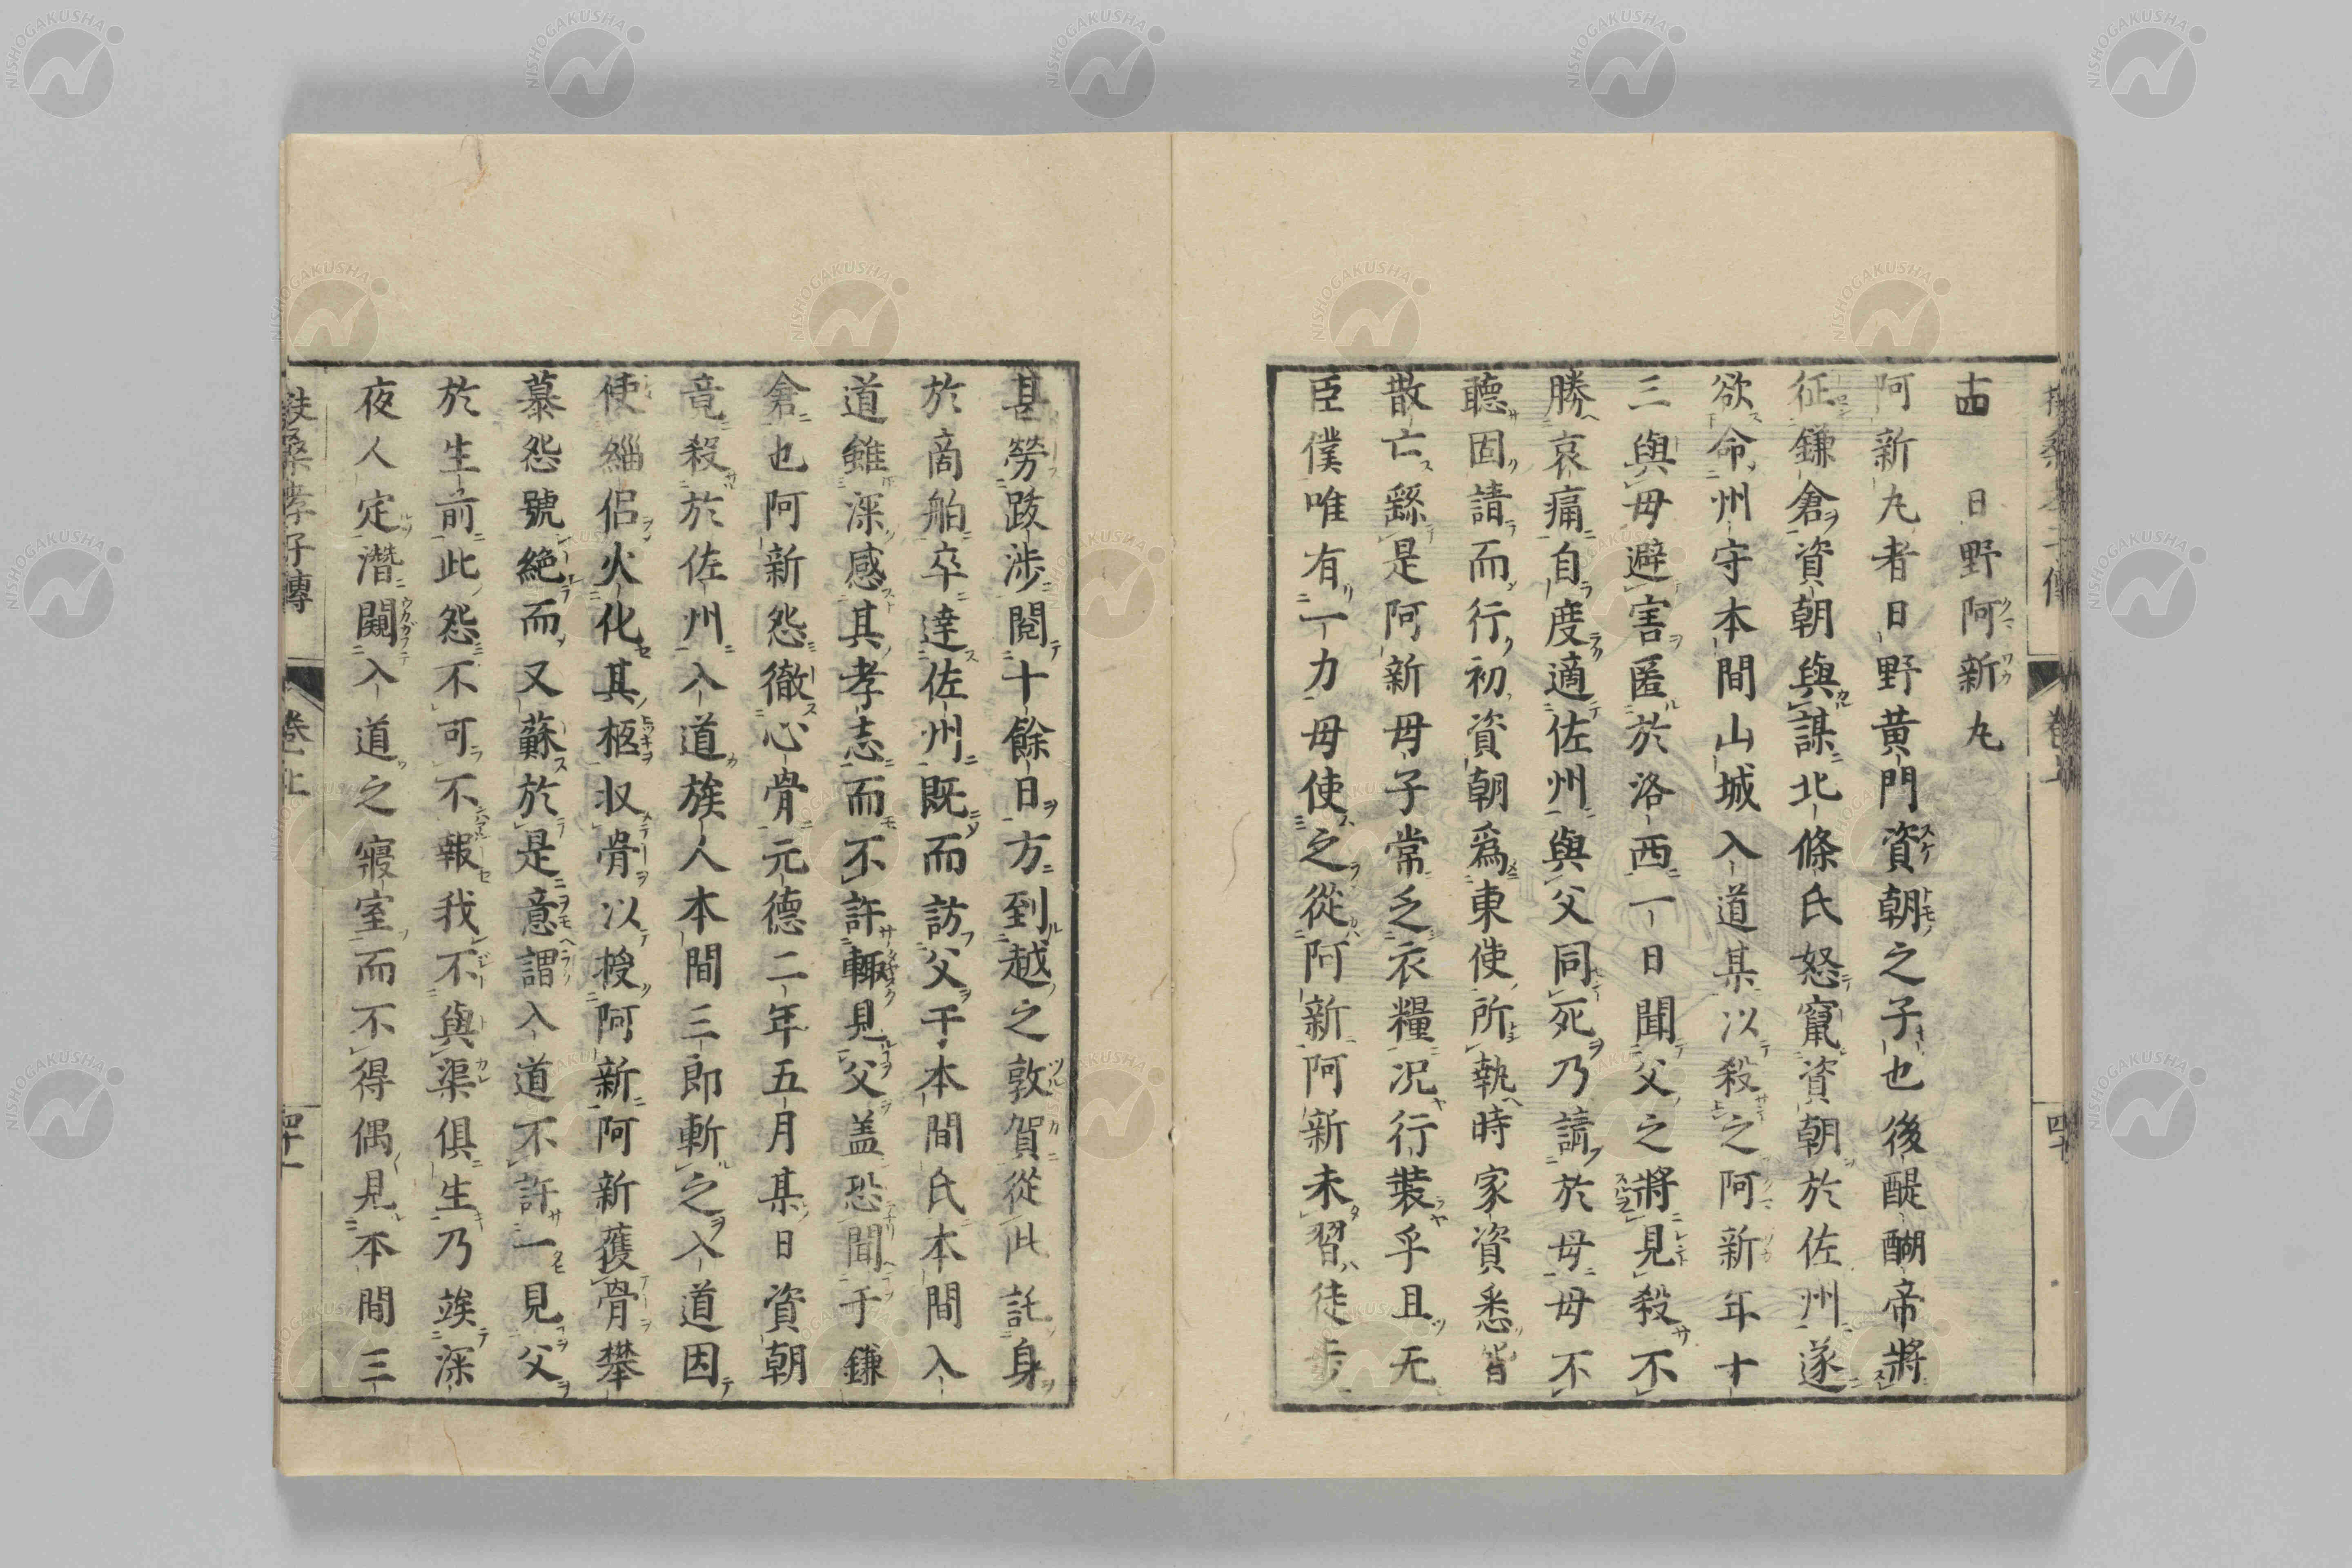 十四 日野阿新丸
阿新丸者日野黄門資朝之子也後醍醐帝將
征鎌倉資朝與謀北條氏怒竄資朝於佐州遂
欲命州守本間山城入道某以殺之阿新年十
三與母避害匿於洛西一日聞父之將見殺不
勝哀痛自度適佐州與父同死乃請於母母不
聽固請而行初資朝爲東使所執時家資悉皆
散亡繇是阿新母子常乏衣糧況行裝乎且无
臣僕唯有一力母使之從阿新阿新未習徒步
甚勞跋涉閲十餘日方到越之敦賀從此託身
於商舶卒達佐州既而訪父于本間氏本間入
道雖深感其孝志而不許輙見父盖恐聞于鎌
倉也阿新怨徹心骨元德二年五月某日資朝
竟殺於佐州入道族人本間三郎斬之入道因
使緇侶火化其柩収骨以授阿新阿新獲骨攀
慕怨號絶而又蘇於是意謂入道不許一見父
於生前此怨不可不報我不與渠俱生乃竢深
夜人定潛闖入道之寢室而不得偶見本間三
扶桑孝子傳 卷上 四十一
NISHOGAKUSHA